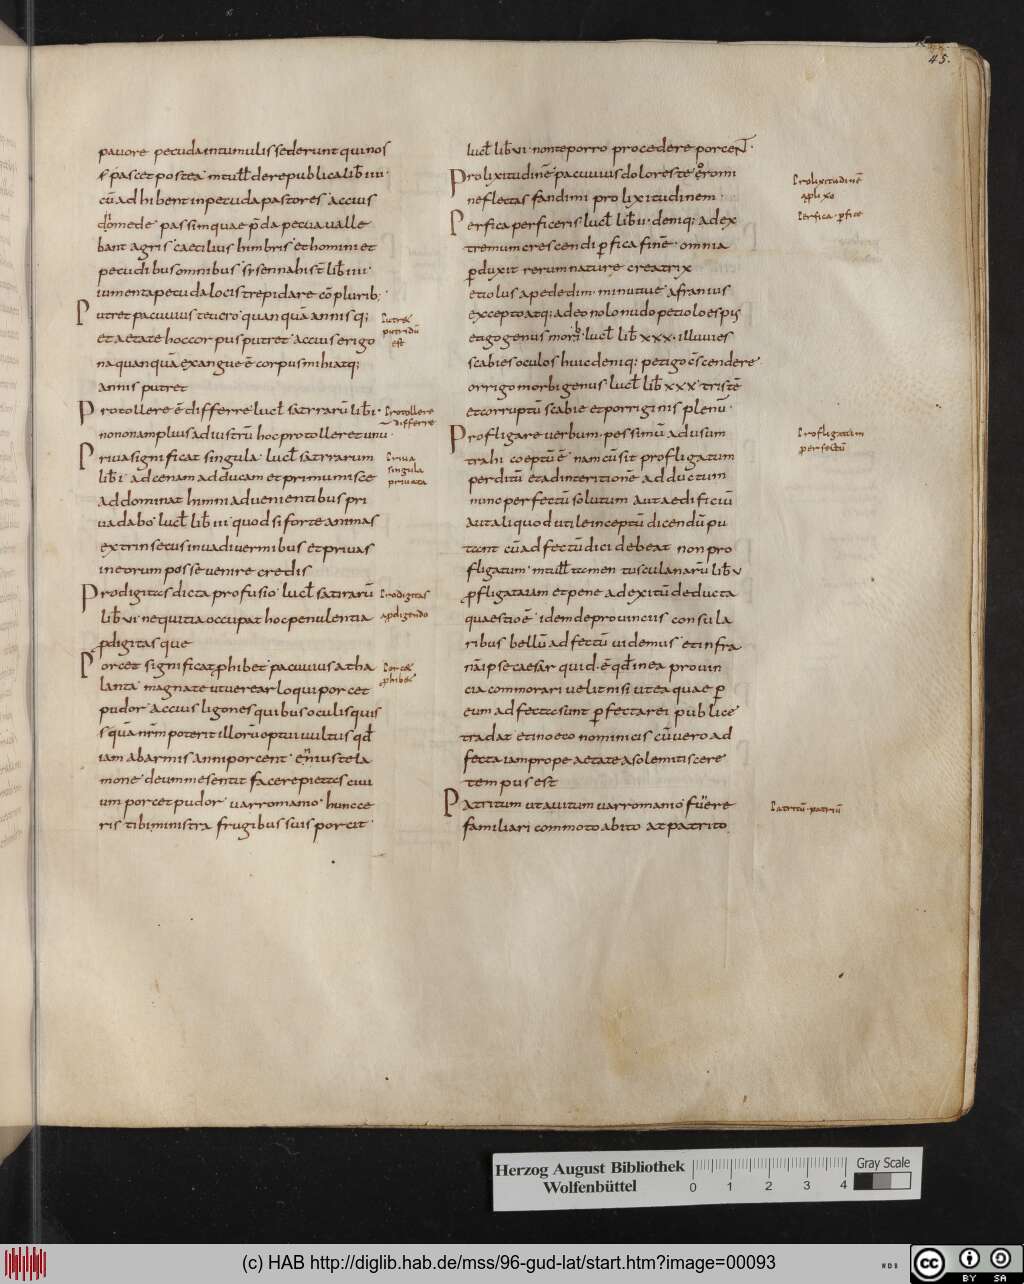 45.
pauore pecuda in tumulis sederunt qui nos
pascet postea m tull de republica lib̄ iiii·
cū adhibent in pecuda pastores accius
diomede passim quae p̄da pecua ualle
bant agris caecilius himbris et homini et
pecudibus omnibus sisennahist lib̄ iiii·
iumenta pecuda locis trepidare cōplurib;
Putret pacuuius teucro quanquā annisq;
et aetate hoc corpus putret accius erigo
na quanquā exangue ē corpus mihi atq;
annis putret
Protollere ē differre lucł satirarū lib̄ i·
non amplius ad iustrū hoc protolleret unū·
Priua significat singula lucł satirarum
lib̄ i· ad cenam adducam et primum isce
addominat himni aduenientibus pri
ua dabo lucł lib̄ iii quod si forte animas
extrinsecus inuadi uermibus et priuas
in eorum posse uenire credis
Prodigitas dicta profusio lucł satirarū
lib̄ vi nequitia occupat hoc penulentia
ꝓdigitasque
Porcet significat ꝓhibet pacuuius atha
lanta magnate ut uerear loqui porcet
pudor accius ligones quibus oculis quis
squā nr̄m poterit illorū optui uultus qđ
iam abarmis anni porcent ennius tela
mone deum me sentit facere pietas ciui
um porcet pudor uarro manio hunc ce
ris tibi ministra frugibus suis porcit·
Putret
putridū
est
Protollere
differre
Priua
singula
priuata
Prodigitas
a ꝓdigendo
Porcet
ꝓhibet
lucł lib̄ vi· nonte porro procedere porcent·
Prolixitudinē pacuuius dolorestes
neflectas fandi mi prolixitudinem·
Perfica perficeris lucł lib̄ ii· deniq; ad ex
tremum crescendi ꝑfica finē· omnia
ꝑduxit rerum nature creatrix
etiolus a pede dim· minutiue afranius
excepto atq; adeo nolo nudo petiolo espis
etigo genus morbi· lucł lib̄ xxx· illuuies
scabies oculos huic deniq; petigo cscendere
orrigo morbi genus lucł lib̄ xxx tristē
et corruptū scabie et porriginis plenū·
Profligare uerbum pessimū adusum
trahi coeptū ē nam cū sit profligatum
perditū et ad interitionē adductum
nunc perfectū solutum aut aedificiū
aut aliquod utile inceptū dicendū pu
tant cū adfectū dici debeat non pro
fligatum· m tull tamen tusculanarū lib̄ v
ꝓfligatam et pene ad exitū deducta
quaestio ē idem de prouinciis consula
ribus bellū adfectū uidemus et infra
nā ipse caesar quid ē qđ in ea prouin
cia commorari uelit nisi ut ea quae ꝑ
eum adfecta sunt ꝑfecta rei publice
tradat et in oeconomicis cū uero ad
fecta iam prope aetate a solemitis cere
tempus est
Patritum ut auitum uarro manio fuere
familiari commoto abito at patrito
Prolixitudinē
a ꝓlixo
Perfica· ꝑfice
Profligatum
perfectū
Patritū· patriū
Herzog August Bibliothek
Wolfenbüttel
0 1 2 3 4
Gray Scale
(c) HAB http://diglib.hab.de/mss/96-gud-lat/start.htm?image=00093
WDB
cc BY SA